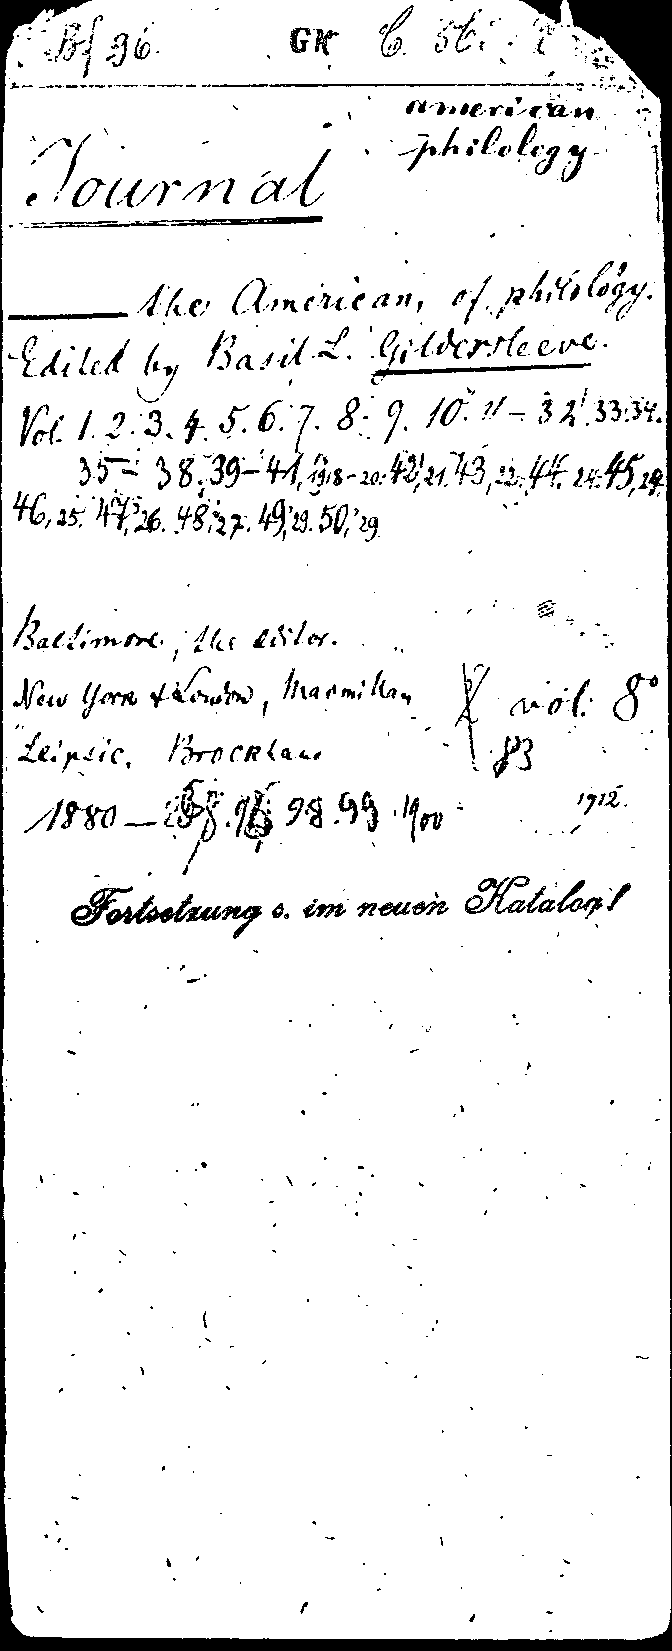 Bf 96. GK C.
american
philology
Journal
—— the American, of philology.
Edited by Basil L. Gildersleeve.
Vol. 1. 2. 3. 4. 5. 6. 7. 8. 9. 10. 11 – 32. 33. 34.
35 – 38, 39 – 41, 1918–20. 42, 21. 43, 22. 44. 24. 45, 24.
46, 25. 47, 26. 48, 27. 49, 29. 50, 29
Baltimore, the editor.
New York & London, Macmillan
vol. 8°
Leipsic, Brockhaus
83
1880 — 98. 99. 1900
1912.
Fortsetzung s. im neuen Katalog!